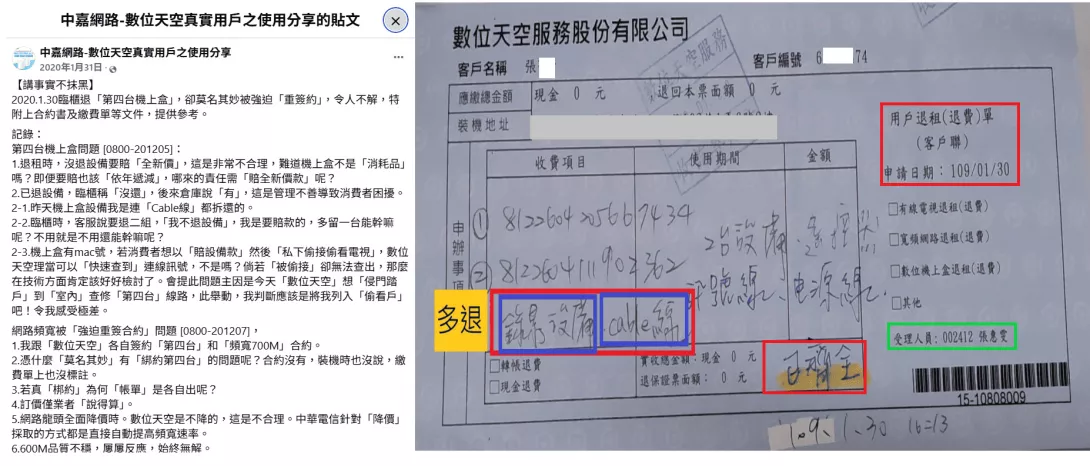 中嘉網路-數位天空真實用戶之使用分享的貼文
中嘉網路-數位天空真實用戶之使用分享
2020年1月31日
【講事實不抹黑】
2020.1.30臨櫃退「第四台機上盒」,卻莫名其妙被強迫「重簽約」,令人不解,特
附上合約書及繳費單等文件,提供參考。
記錄:
第四台機上盒問題 [0800-201205]:
1.退租時,沒退設備要賠「全新價」,這是非常不合理,難道機上盒不是「消耗品」
嗎?即便要賠也該「依年遞減」,哪來的責任需「賠全新價款」呢?
2.已退設備,臨櫃稱「沒還」,後來倉庫說「有」,這是管理不善導致消費者困擾。
2-1.昨天機上盒設備我是連「Cable線」都拆還的。
2-2.臨櫃時,客服說要退二組,「我不退設備」,我是要賠款的,多留一台能幹嘛
呢?不用就是不用還能幹嘛呢?
2-3.機上盒有mac號,若消費者想以「賠設備款」然後「私下偷接偷看電視」,數位
天空理當可以「快速查到」連線訊號,不是嗎?倘若「被偷接」卻無法查出,那麼
在技術方面肯定該好好檢討了。會提此問題主因是今天「數位天空」想「侵門踏
戶」到「室內」查修「第四台」線路,此舉動,我判斷應該是將我列入「偷看戶」
吧!令我感受極差。
網路頻寬被「強迫重簽合約」問題 [0800-201207],
1.我跟「數位天空」各自簽約「第四台」和「頻寬700M」合約。
2.憑什麼「莫名其妙」有「綁約第四台」的問題呢?合約沒有,裝機時也沒說,繳
費單上也沒標註。
3.若真「綁約」為何「帳單」是各自出呢?
4.訂價僅業者「說得算」。
5.網路龍頭全面降價時。數位天空是不降的,這是不合理。中華電信針對「降價」
採取的方式都是直接自動提高頻寬速率。
6.600M品質不穩,屢屢反應,始終無解。
數位天空服務股份有限公司
客戶名稱 張
客戶編號 6 74
應繳總金額 現金 0 元 ,退回本票面額 0 元
裝機地址
用戶退租(退費)單
(客戶聯)
申請日期: 109/01/30
收費項目 使用期間 金額
申辦事項
①
②
2台設備、遙控器
訊號線、电源線
多退
錦昂設備 cable線
□有線電視退租(退費)
□寬頻網路退租(退費)
□數位機上盒退租(退費)
□其他
受理人員:002412 張惠雯
□轉帳退費
□現金退費
實收總金額:現金 0 元
退保證票面額: 0 元
已齊全
15-10808009
109、1、30 16=13